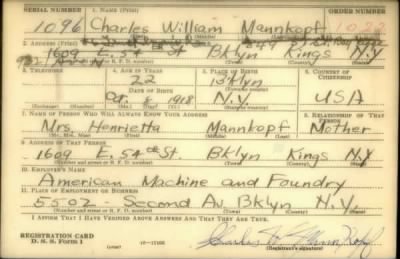 SERIAL NUMBER 1. NAME (Print) ORDER NUMBER
1096 Charles William Mannkopf
2. ADDRESS (Print)
1609 E. 54 St Bklyn Kings N.Y.
3. TELEPHONE 4. AGE IN YEARS 5. PLACE OF BIRTH 6. COUNTRY OF CITIZENSHIP
22 Bklyn
DATE OF BIRTH
1918 N.Y. USA
(Exchange) (Number) (Mo.) (Day) (Yr.) (State or country)
7. NAME OF PERSON WHO WILL ALWAYS KNOW YOUR ADDRESS 8. RELATIONSHIP OF THAT PERSON
Mrs. Henrietta Mannkopf Mother
(Mr., Mrs., Miss) (First) (Middle) (Last)
9. ADDRESS OF THAT PERSON
1609 E. 54th St. Bklyn Kings N.Y
(Number and street or R. F. D. number) (Town) (County) (State)
10. EMPLOYER'S NAME
American Machine and Foundry
11. PLACE OF EMPLOYMENT OR BUSINESS
5502 - Second Av. Bklyn N.Y.
(Number and street or R. F. D. number) (Town) (County) (State)
I AFFIRM THAT I HAVE VERIFIED ABOVE ANSWERS AND THAT THEY ARE TRUE.
REGISTRATION CARD
D. S. S. Form 1 (over)
Charles W Mannkopf
(Registrant's signature)